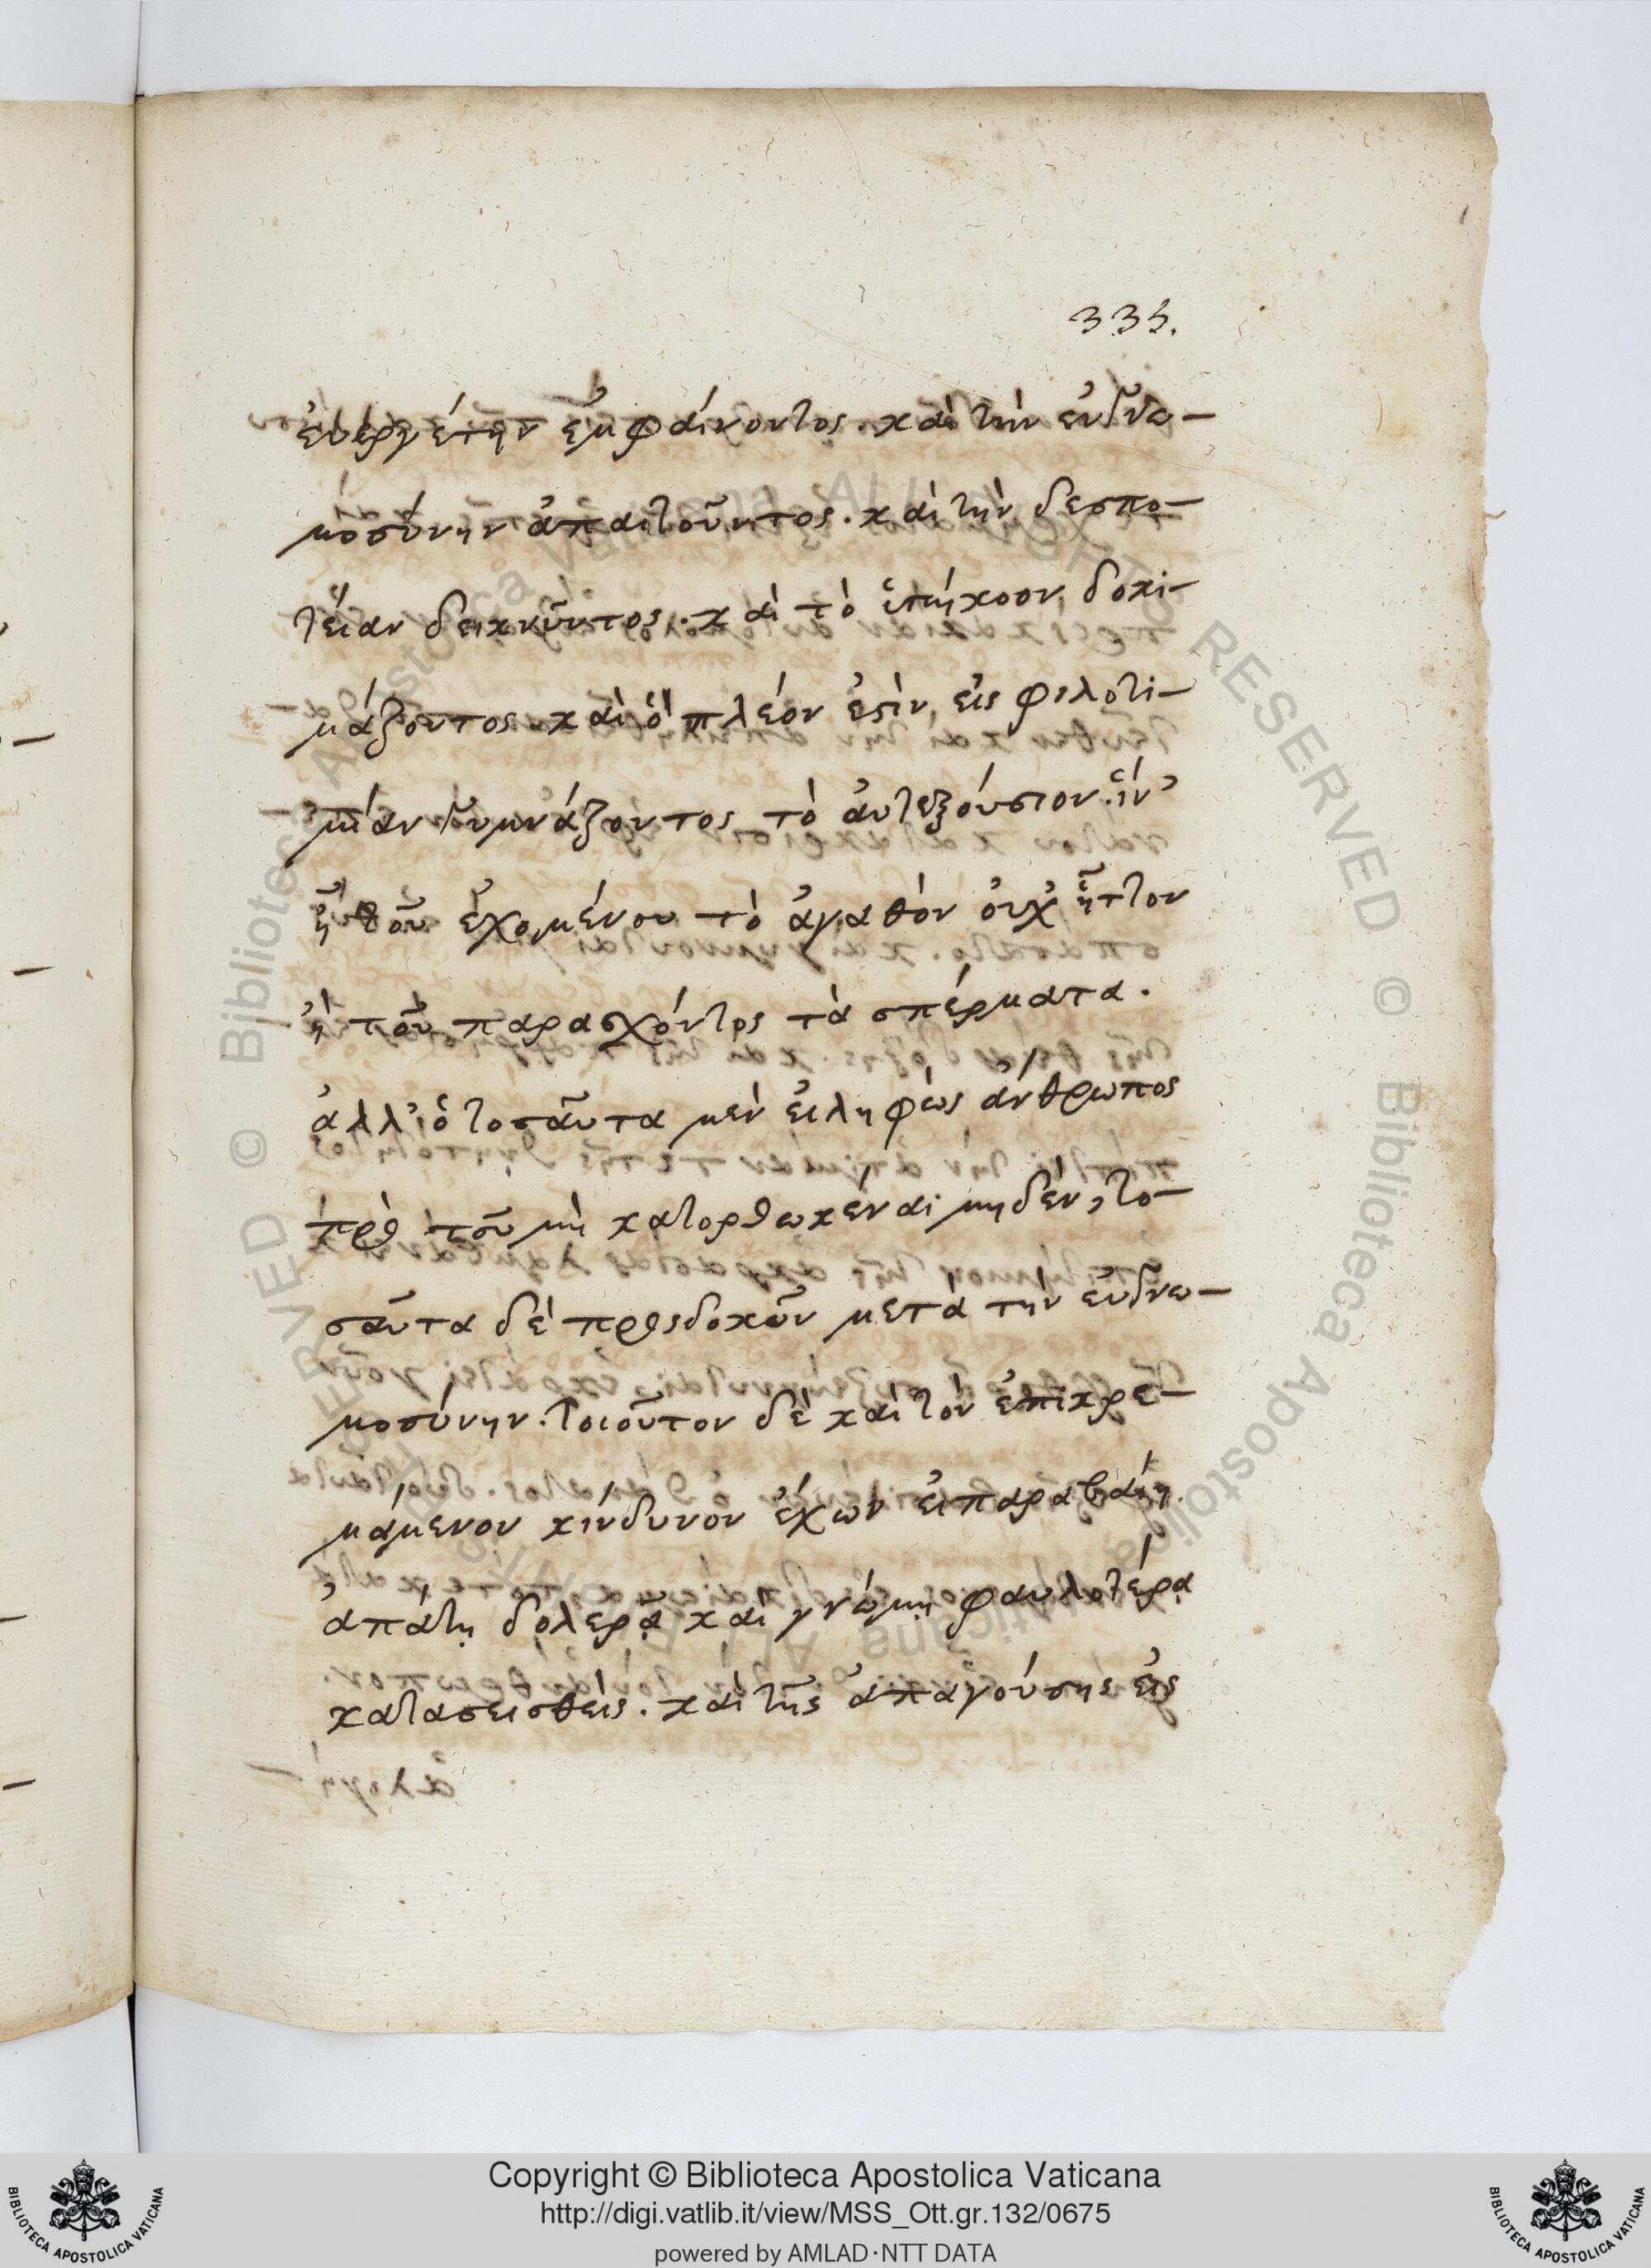 335.
ἐυεργέτην ἐμφαίνοντος. καὶ τὴν ἐυγνω-
μοσύνην ἀπαιτοῦντος. καὶ τὴν δεσπο-
τείαν δεικνῦντος. καὶ τὸ ὑπήκοον δοκι-
μάζοντος. καὶ ὃ πλέον ἐστὶν, εἰς φιλοτι-
μίαν γυμνάζοντος τὸ ἀυτεξούσιον. ἵν'
ᾖ τοῦ ἐχομένου τὸ ἀγαθὸν ὀυχ ἧττον
ἢ τοῦ παρασχόντος τὰ σπέρματα.
ἀλλ' ὁ τοσαῦτα μὲν ἐιληφὼς ἄνθρωπος
πρὸ τοῦ μὴ κατορθωκέναι μηδὲν, το-
σαῦτα δὲ προσδοκῶν μετὰ τὴν ἐυγνω-
μοσύνην. τοιοῦτον δὲ καὶ τὸν ἐπικρε-
μάμενον κίνδυνον ἔχων ἐι παραβαίη.
ἀπάτῃ δολερᾷ καὶ γνώμῃ φαυλοτέρᾳ
κατασεισθεὶς. καὶ τῆς ἀπαγούσης εἰς
Copyright © Biblioteca Apostolica Vaticana
http://digi.vatlib.it/view/MSS_Ott.gr.132/0675
powered by AMLAD·NTT DATA
BIBLIOTECA APOSTOLICA VATICANA
BIBLIOTECA APOSTOLICA VATICANA